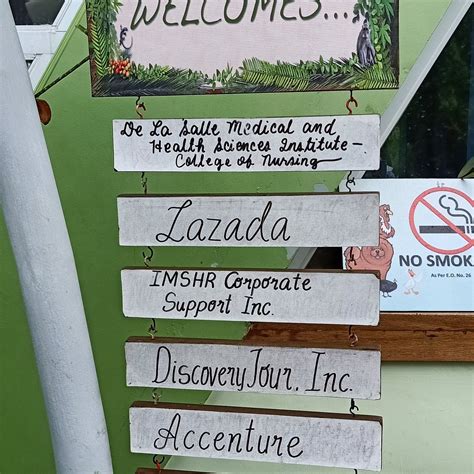 WELCOMES...
De La Salle Medical and
Health Sciences Institute -
College of Nursing
Lazada
IMSHR Corporate
Support Inc.
Discovery Tour, Inc.
Accenture
NO SMOK
As Per E.O. No. 26